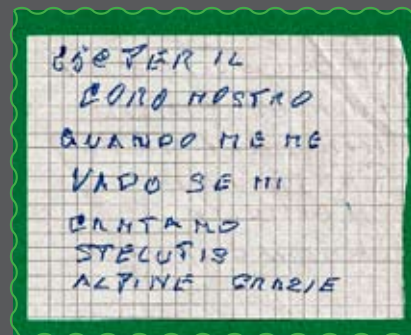 PER IL
CORO NOSTRO
QUANDO ME NE
VADO SE MI
CANTANO
STELUTIS
ALPINE GRAZIE